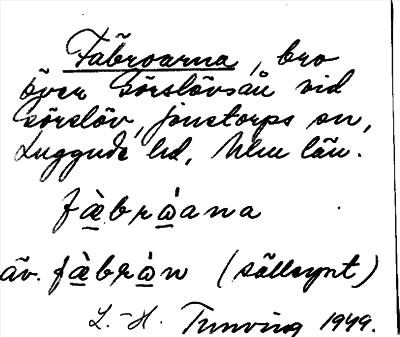 Fäbroarna, bro
över Görslövsån vid
Görslöv, Jonstorps sn,
Luggude hd, Mlm län.
fæ̀bròana
äv. fæ̀bròn (sällsynt)
L.-H. Tunving 1949.